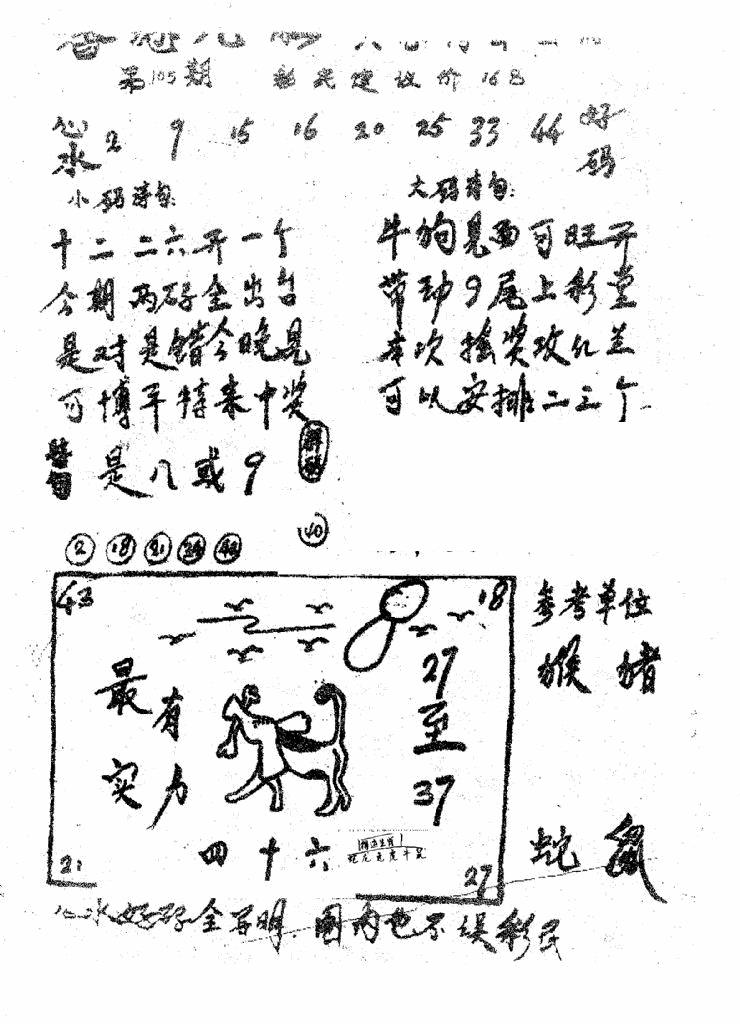 第105期 彩民建议价16B
心水 2 9 15 16 20 25 33 44 好码
小码诗句:
十二二六开一个
今期两码全出台
是对是错今晚见
可博平特来中奖
是八或9
解码
大码诗句:
牛狗见面可旺开
带动9尾上彩堂
本次搖奖攻红兰
可以安排二三个
② ⑱ ㉑ ㊵
43 18
最有实力
27至37
四十六
21 27
参考单位
猴 猪
蛇 鼠
心水好码全写明 图内也不误彩民